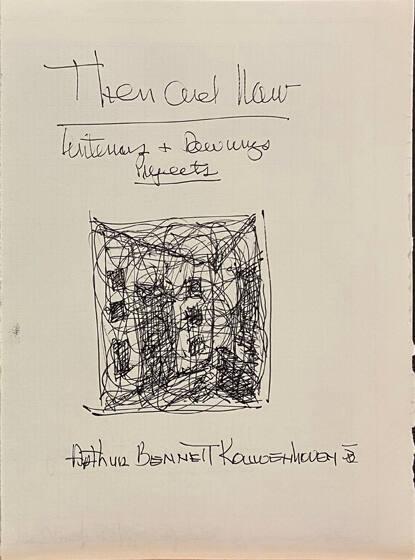 Then and Now
Writings + Drawings
Projects
Arthur Bennett Kouwenhoven III